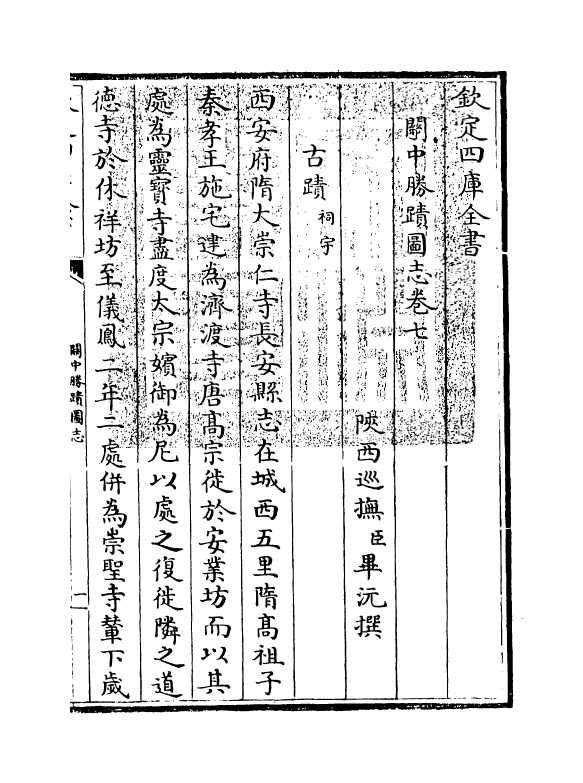 欽定四庫全書
關中勝蹟圖志卷七
陝西巡撫臣畢沅撰
古蹟祠宇
西安府隋大崇仁寺長安縣志在城西五里隋髙祖子
秦孝王施宅建為濟渡寺唐髙宗徙於安業坊而以其
處為靈寶寺盡度太宗嬪御為尼以處之復徙隣之道
德寺於休祥坊至儀鳳二年二處併為崇聖寺輦下歲
關中勝蹟圖志
一